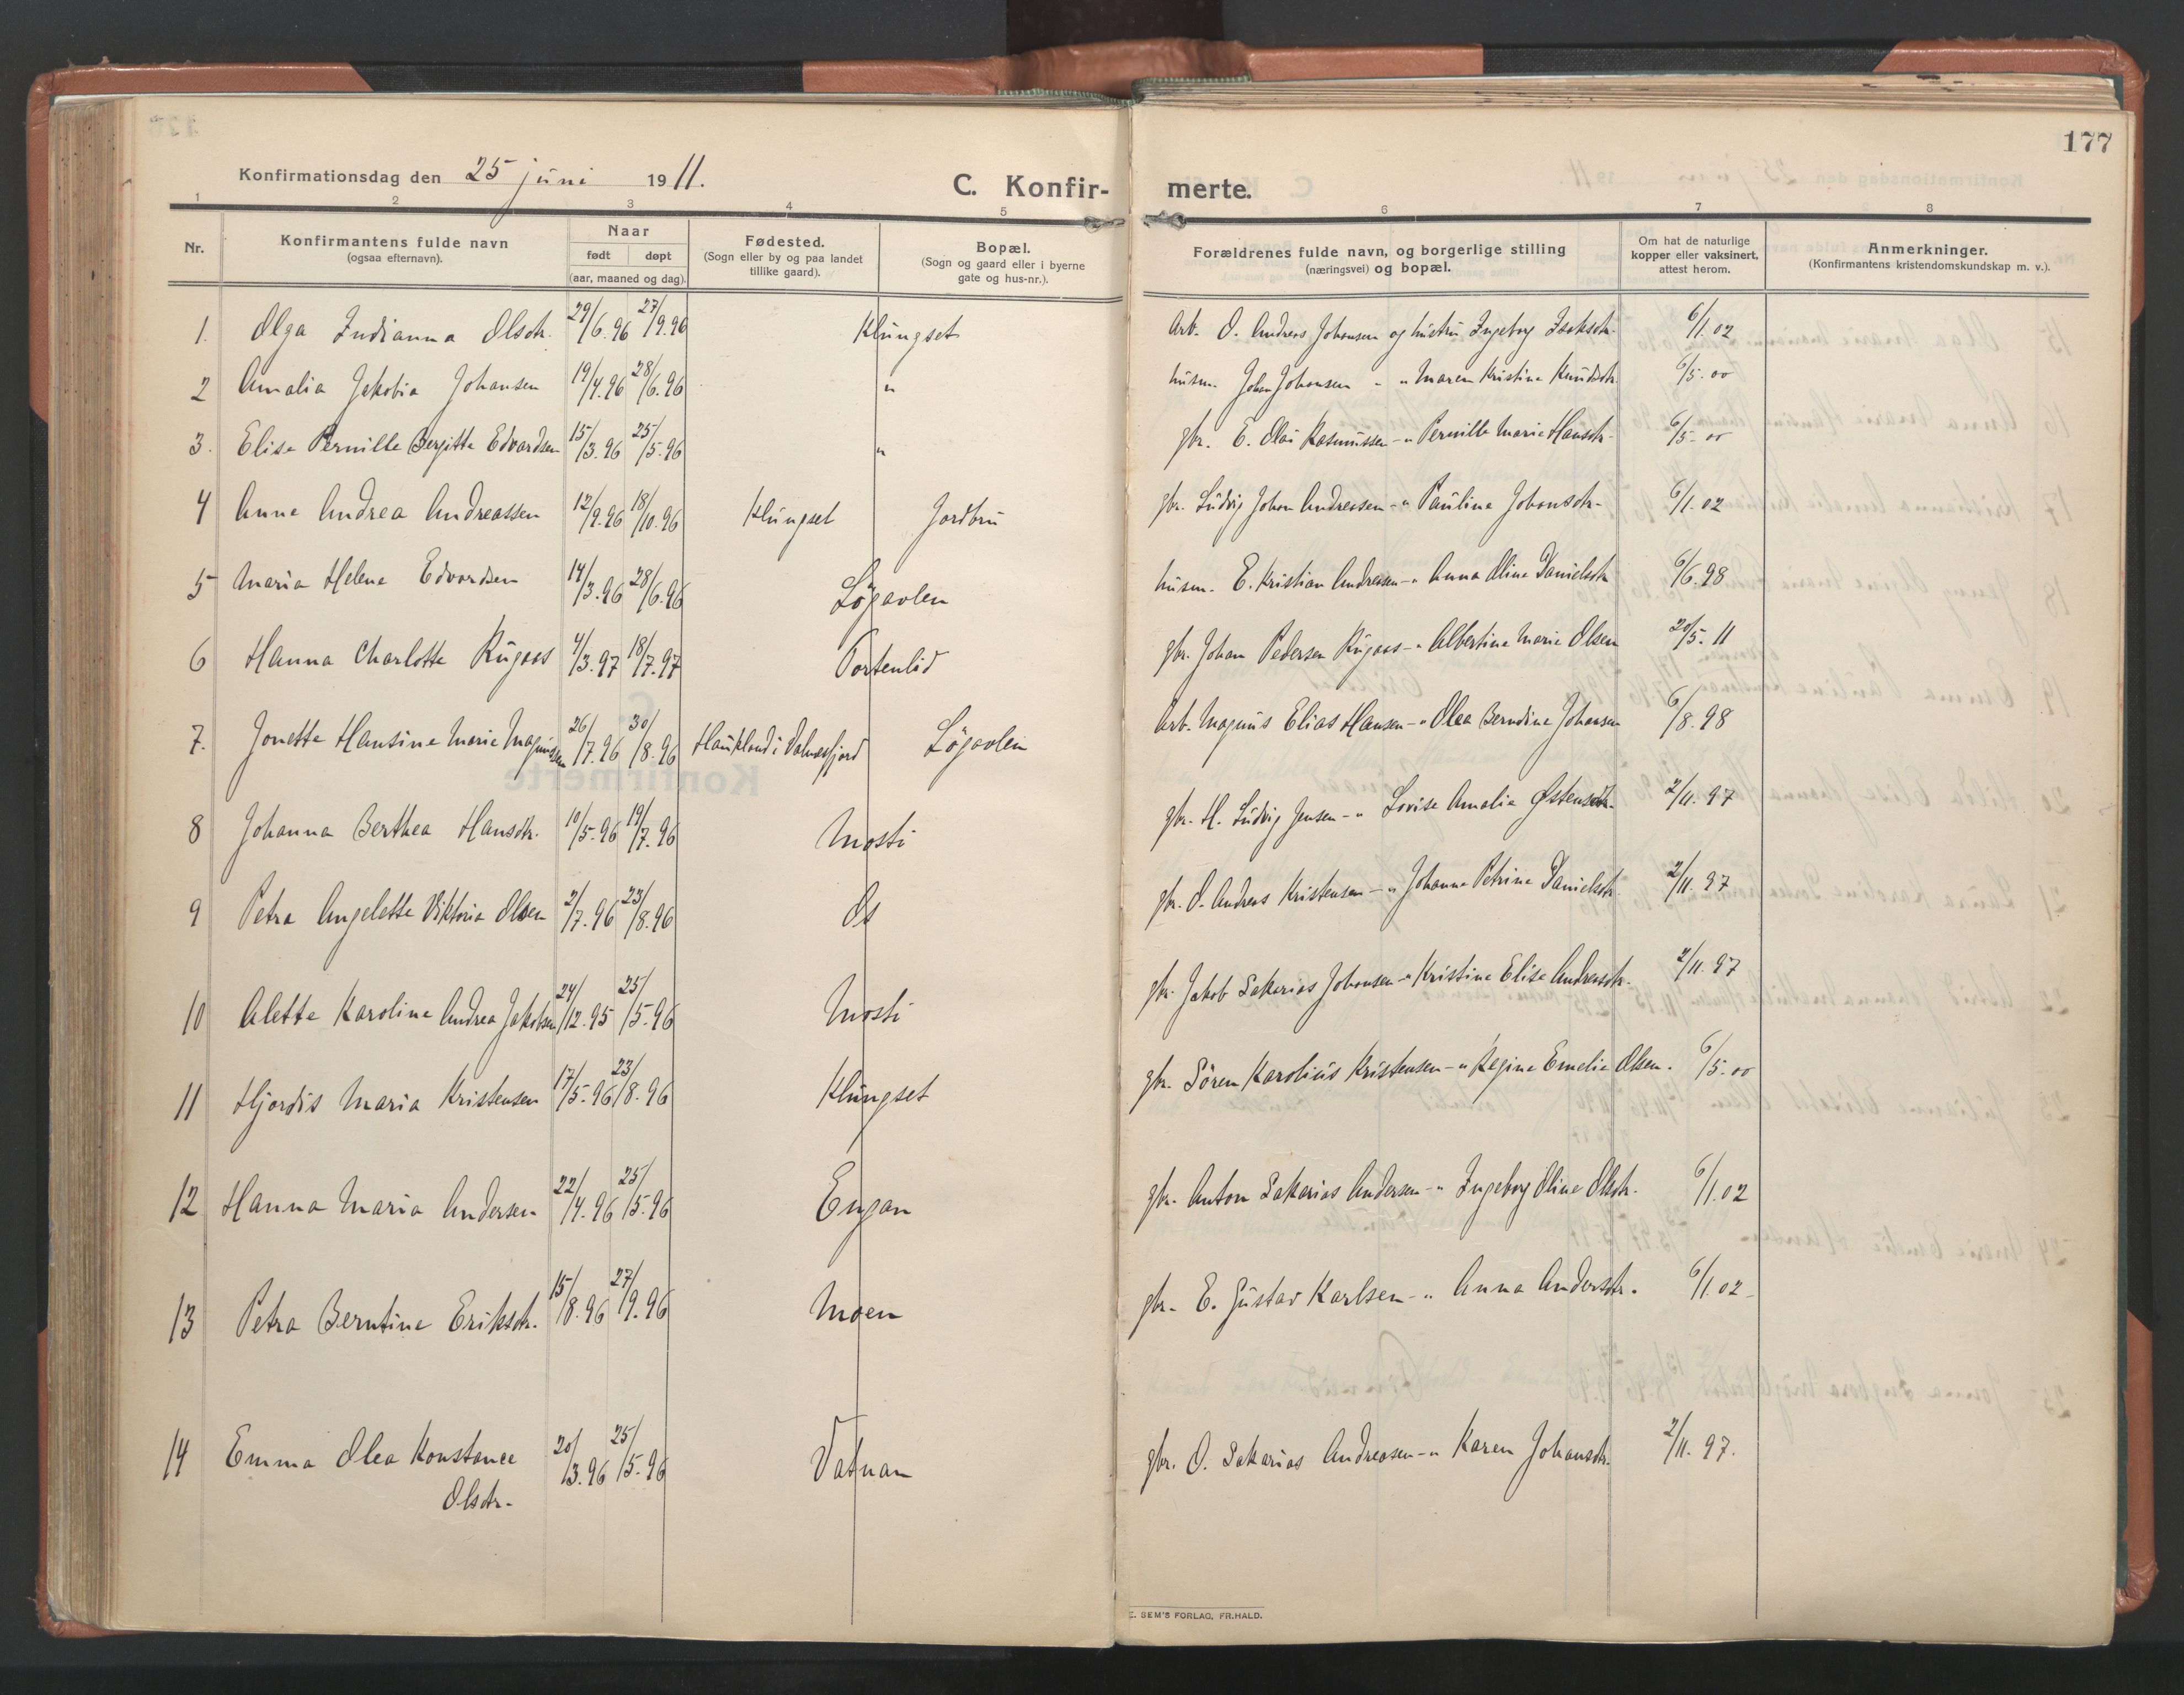 177
Konfirmationsdag den 25 juni 1911.
C. Konfir- merte.
1 2 3 4 5 6 7 8
Nr. Konfirmantens fulde navn (ogsaa efternavn). Naar født døpt (aar, maaned og dag). Fødested. (Sogn eller by og paa landet tillike gaard). Bopæl. (Sogn og gaard eller i byerne gate og hus-nr.). Forældrenes fulde navn, og borgerlige stilling (næringsvei) og bopæl. Om hat de naturlige kopper eller vaksinert, attest herom. Anmerkninger. (Konfirmantens kristendomskundskap m. v.).
1. Olga Indianna Olsdtr. 29/6.96 27/9.96 Klungset Arb. O. Andreas Johansen og hustru Ingeborg Isaksdtr. 6/1.02
2 Amalia Jakobia Johansen 19/4.96 28/6.96 " husm. Johan Johansen - " Maren Kristine Knudsdtr. 6/5.00
3. Elise Pernille Bergitte Edvardsen 15/3.96 25/5.96 " gbr. E. Olai Rasmussen - " Pernille Marie Hansdtr. 6/5.00
4 Anne Andrea Andreassen 12/9.96 18/10.96 Klungset Jordbru gbr. Ludvig Johan Andreasen - " Pauline Johansdtr. 6/1.02
5 Maria Helene Edvardsen 14/3.96 28/6.96 Løgavlen husm. E. Kristian Andreasen - " Anna Oline Danielsdtr. 6/6.98
6 Hanna Charlotte Rugaas 4/3.97 18/7.97 Tortenlid gbr. Johan Pedersen Rugaas - " Albertine Marie Olsen 20/5.11
7. Jonette Hansine Marie Magnussen 26/7.96 30/8.96 Haukland i Valnesfjord Løgavlen Arb. Magnus Elias Hansen - " Olea Berndine Johansen 6/8.98
8 Johanna Berthea Hansdtr. 10/5.96 19/7.96 Mosti gbr. H. Ludvig Jensen - " Lovise Amalie Østensdtr. 2/11.97
9 Petra Angelette Viktoria Olsen 2/7.96 23/8.96 Os gbr. O. Andreas Kristensen - " Johanna Petrine Danielsdtr. 2/11.97
10 Alette Karoline Andrea Jakobsen 24/12.95 25/5.96 Mosti gbr. Jakob Sakarias Johansen - " Kristine Elise Andreasdtr. 2/11.97
11 Hjordis Maria Kristensen 17/5.96 23/8.96 Klungset gbr. Sören Karolius Kristensen - " Regine Emelie Olsen. 6/5.00
12 Hanna Maria Andersen 22/4.96 25/5.96 Engan gbr. Anton Sakarias Andersen - " Ingeborg Oline Olsdtr. 6/1.02
13 Petra Berntine Eriksdtr. 15/8.96 27/9.96 Moen gbr. E. Gustav Karlsen - " Anna Andersdtr. 6/1.02
14 Emma Olea Konstance 20/3.96 25/5.96 Vatnan gbr. O. Sakarias Andreasen - " Karen Johansdtr. 2/11.97.
Olsdtr.
E. SEM'S FORLAG, FR.HALD.